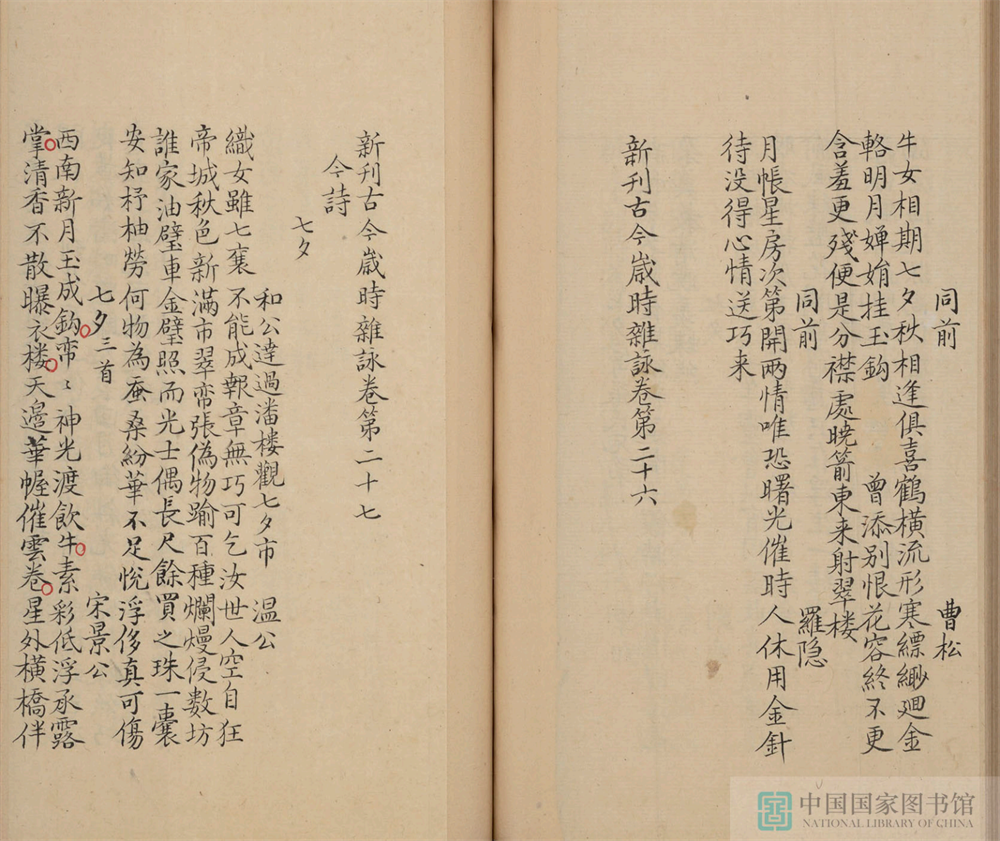 同前 曹松
牛女相期七夕秋相逢俱喜鶴橫流形寒縹緲迴金
輅明月嬋娟挂玉鈎 曾添別恨花容終不更
含羞更殘便是分襟處曉箭東来射翠楼
同前 羅隐
月帳星房次第開兩情唯恐曙光催時人休用金針
待没得心情送巧来
新刊古今嵗時雜詠卷第二十六
新刊古今嵗時雜詠卷第二十七
今詩
七夕
和公達過潘楼觀七夕市 温公
織女雖七襄不能成報章無巧可乞汝世人空自狂
帝城秋色新滿市翠帟張偽物踰百種爛熳侵数坊
誰家油壁車金璧照而光士偶長尺餘買之珠一囊
安知杼柚勞何物為蚕桑紛華不足悅浮侈真可傷
七夕三首 宋景公
西南新月玉成鈎帟〻神光渡飲牛素彩低浮承露
掌清香不散曝衣楼天邉華幄催雲卷星外橫橋伴
中国国家图书馆
NATIONAL LIBRARY OF CHINA